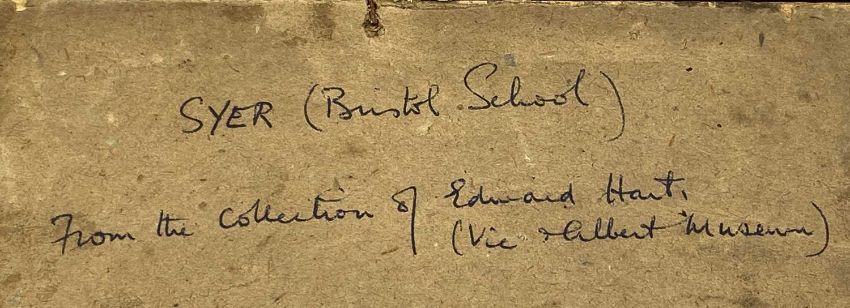 SYER (Bristol School)
From the Collection of Edward Hart,
(Vic & Albert Museum)